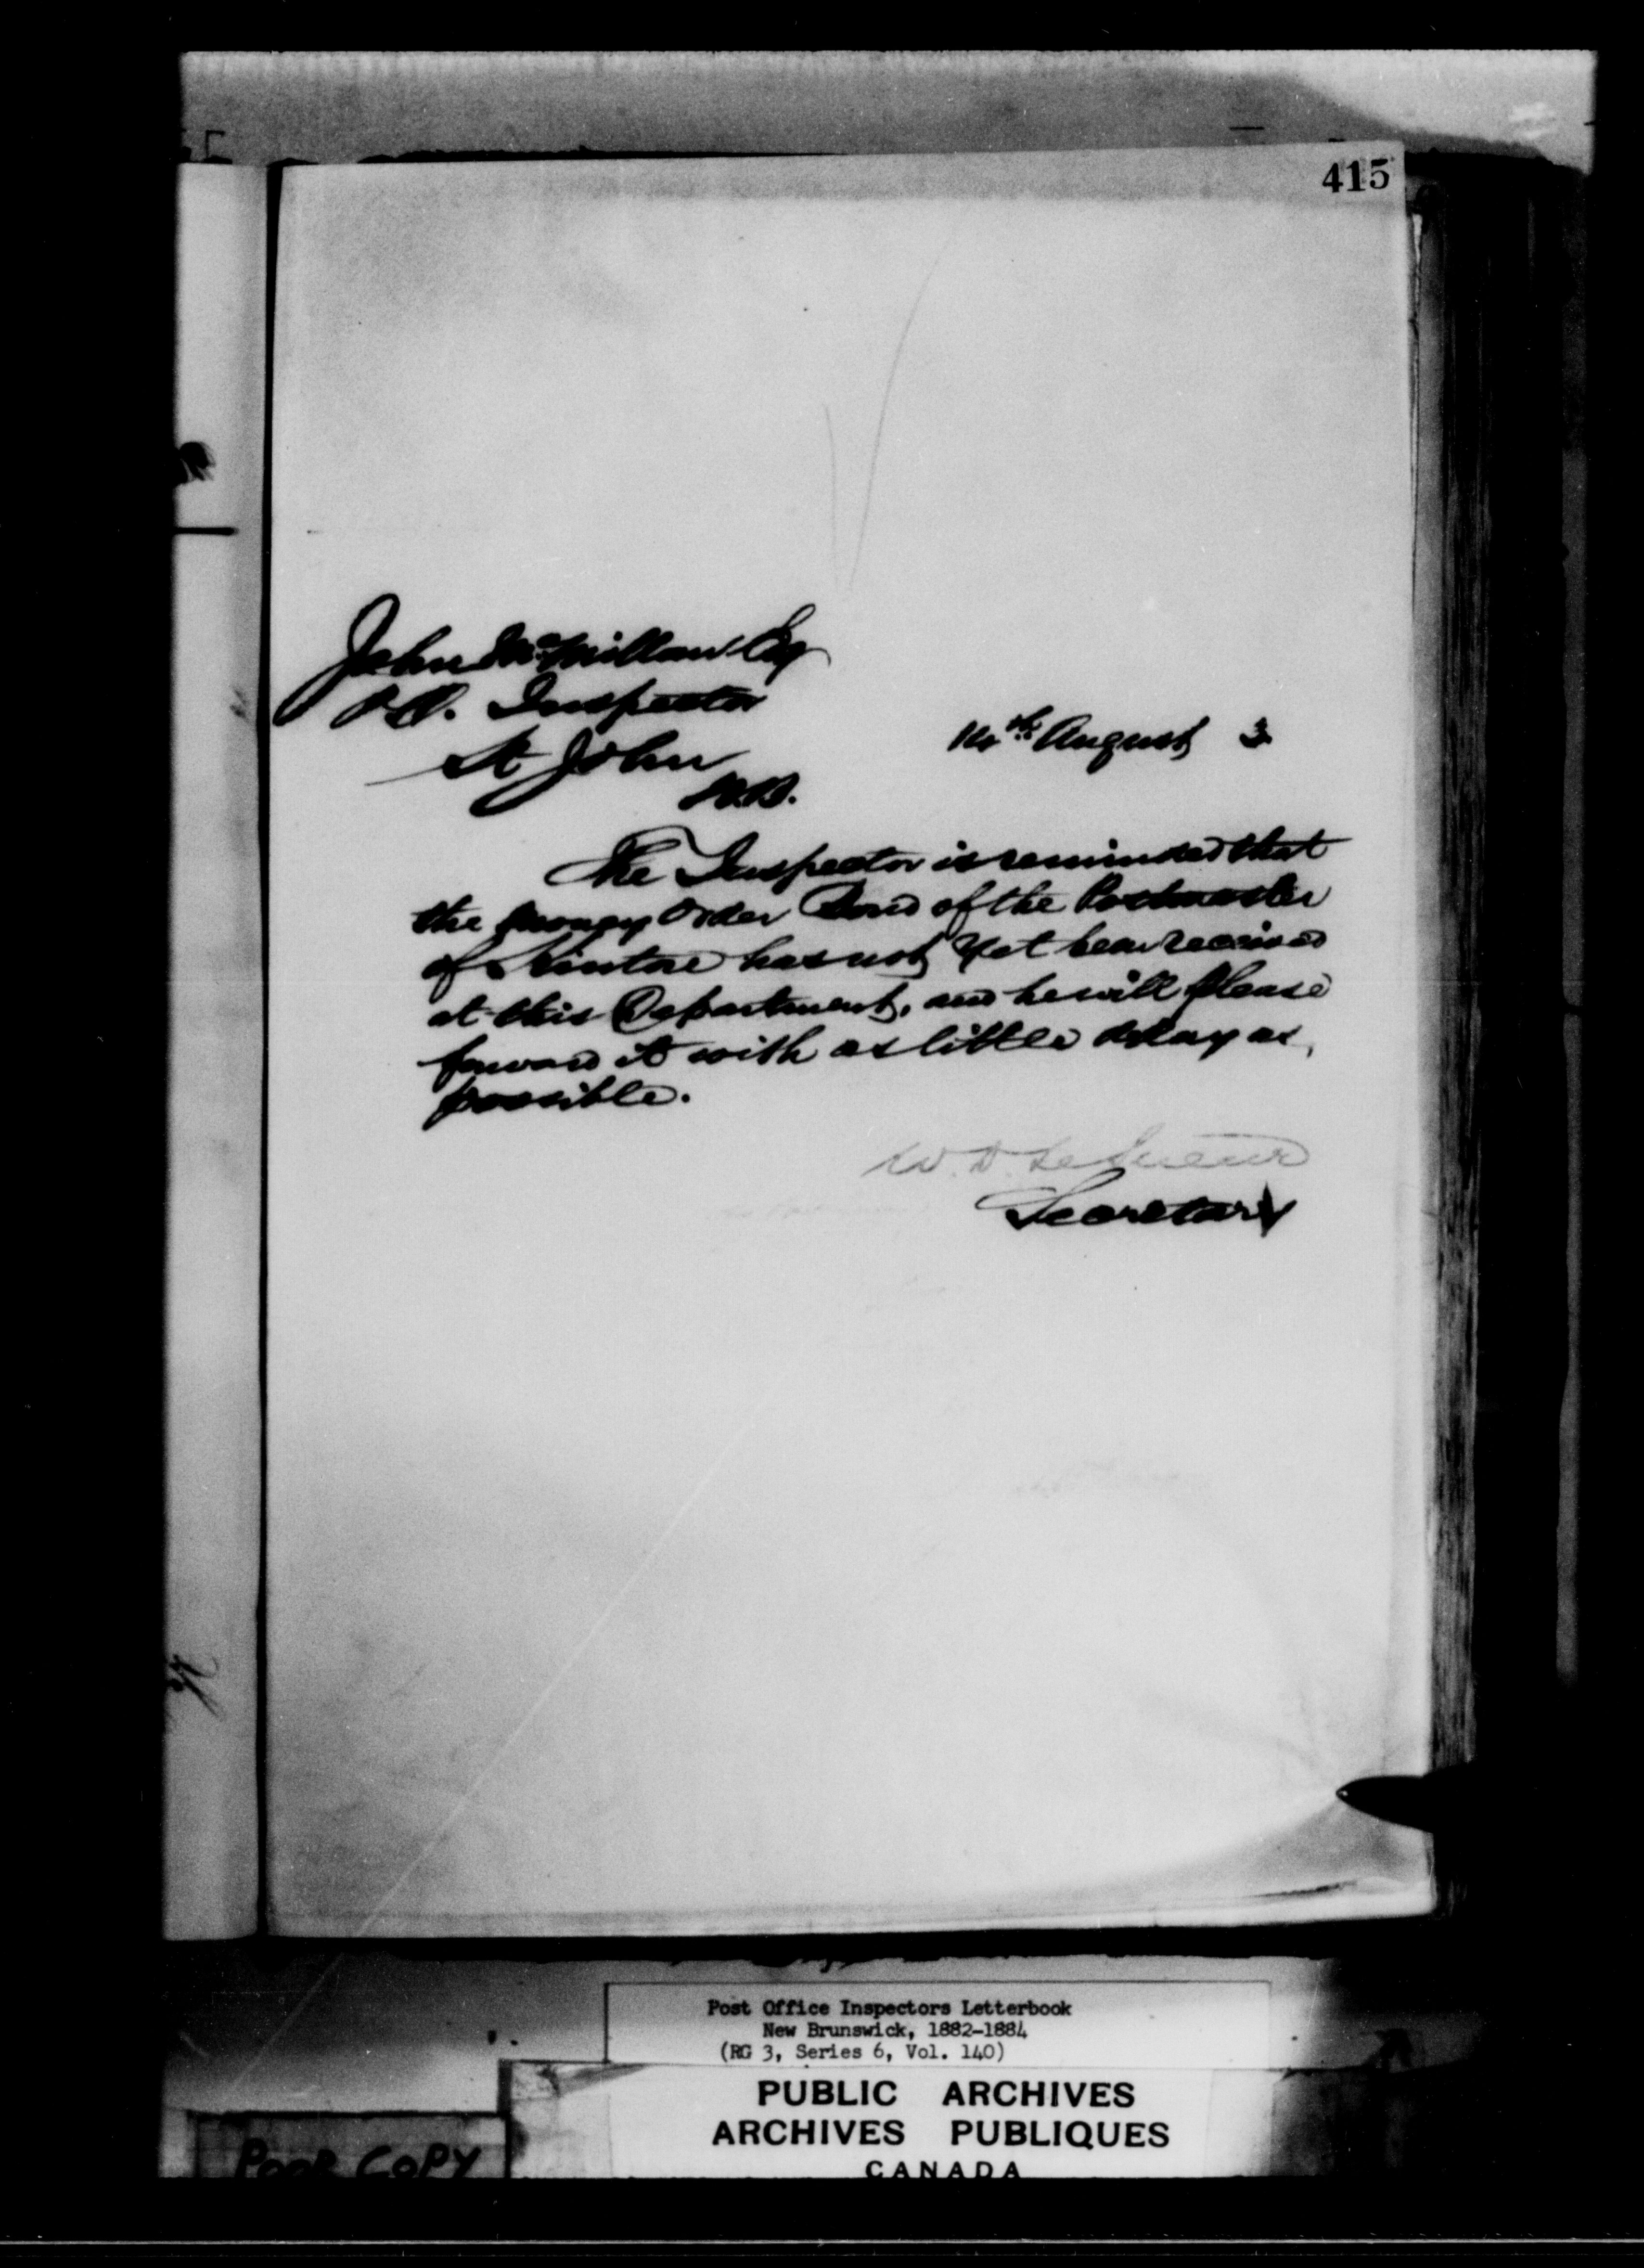 415
John McMillan Esq
P.O. Inspector
St John
N.B.
14th August 3
The Inspector is reminded that
the Money Order Bond of the Postmaster
of Kintore has not yet been received
at this Department, and he will please
forward it with as little delay as
possible.
W. D. LeSueur
Secretary
Post Office Inspectors Letterbook
New Brunswick, 1882-1884
(RG 3, Series 6, Vol. 140)
PUBLIC ARCHIVES
ARCHIVES PUBLIQUES
CANADA
POOR COPY